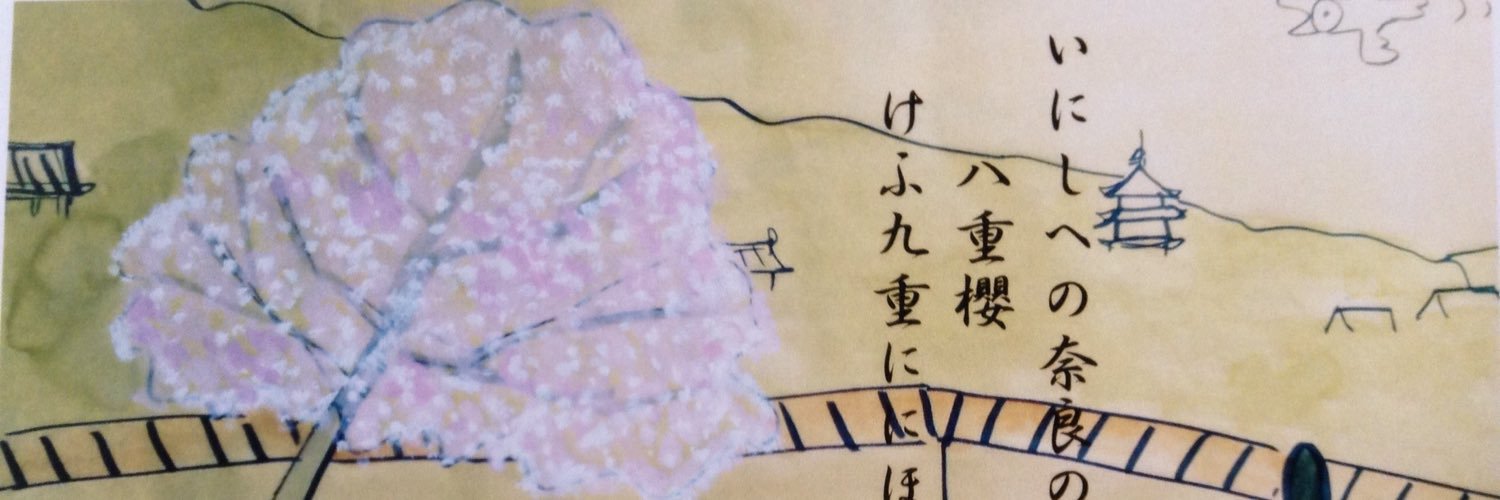 いにしへの奈良の
八重櫻
けふ九重ににほ